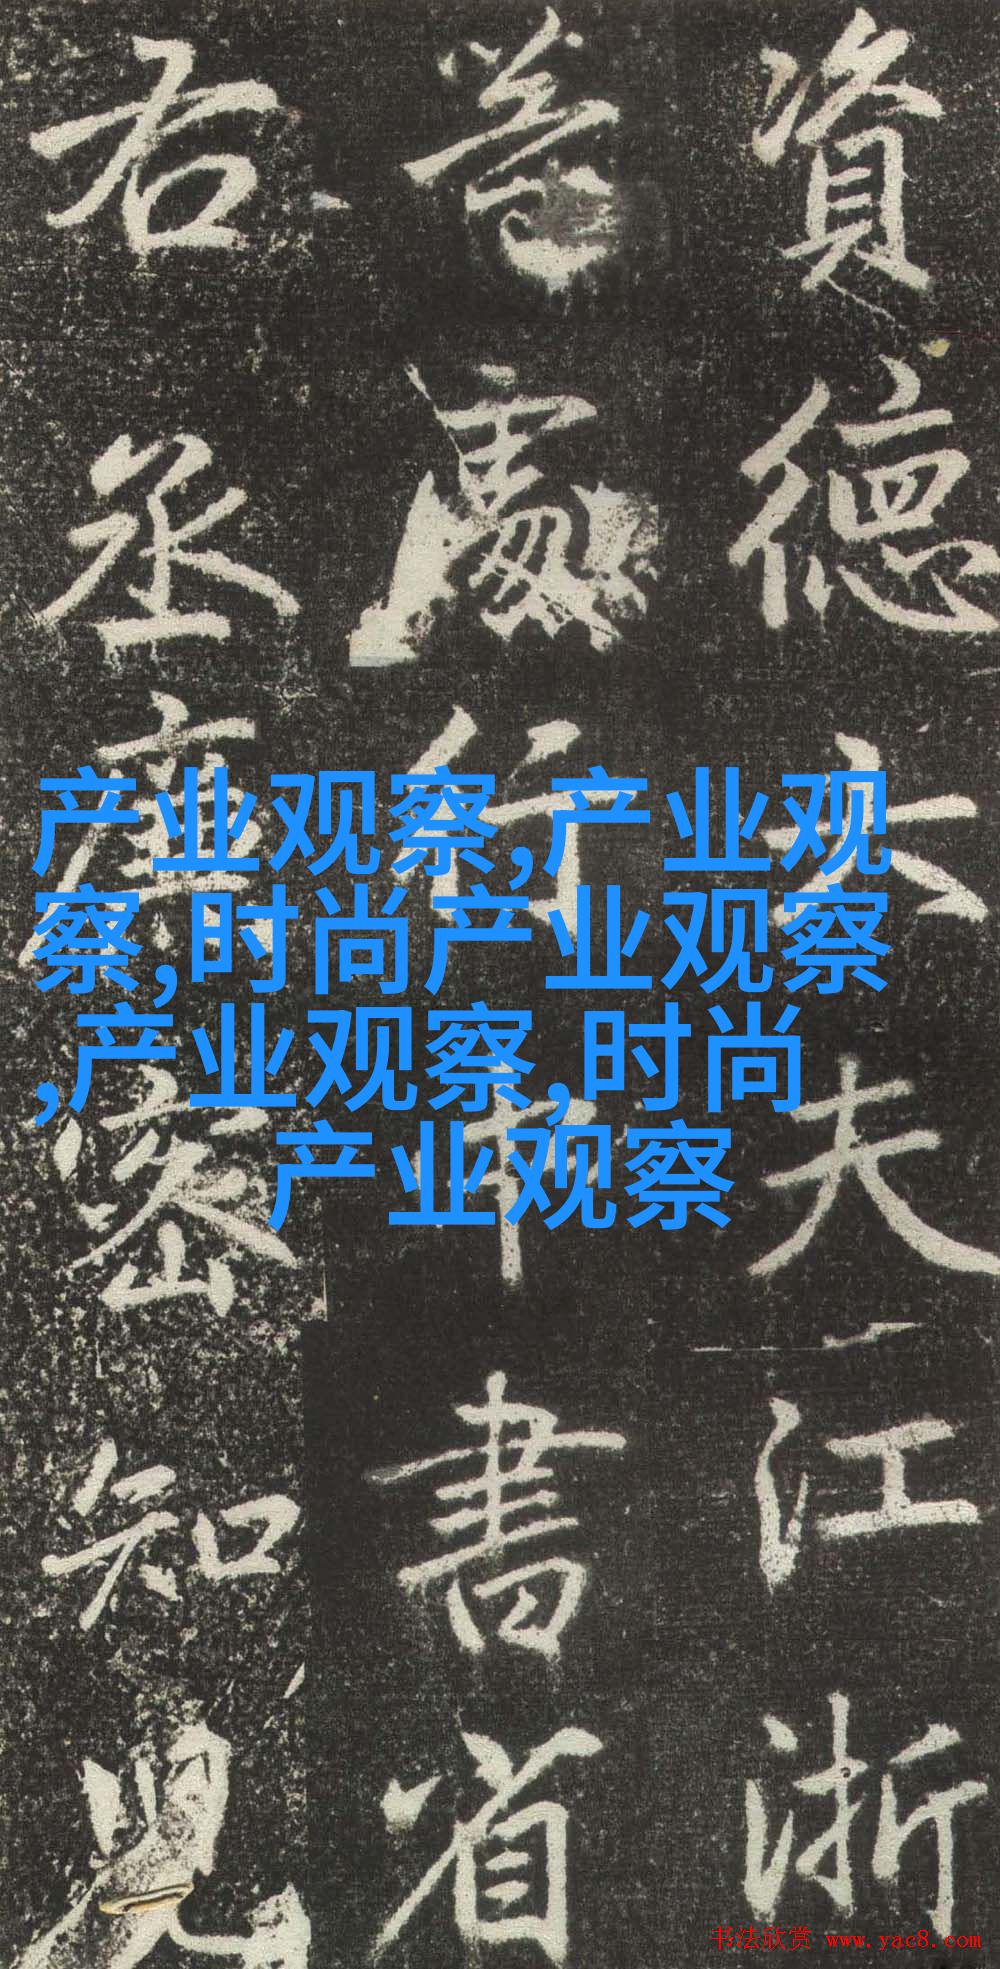 資德大夫江浙
等處行中書省
右丞廉密知兒
产业观察,产业观
察,时尚产业观察
,产业观察,时尚
产业观察
书法欣赏 www.yac8.com